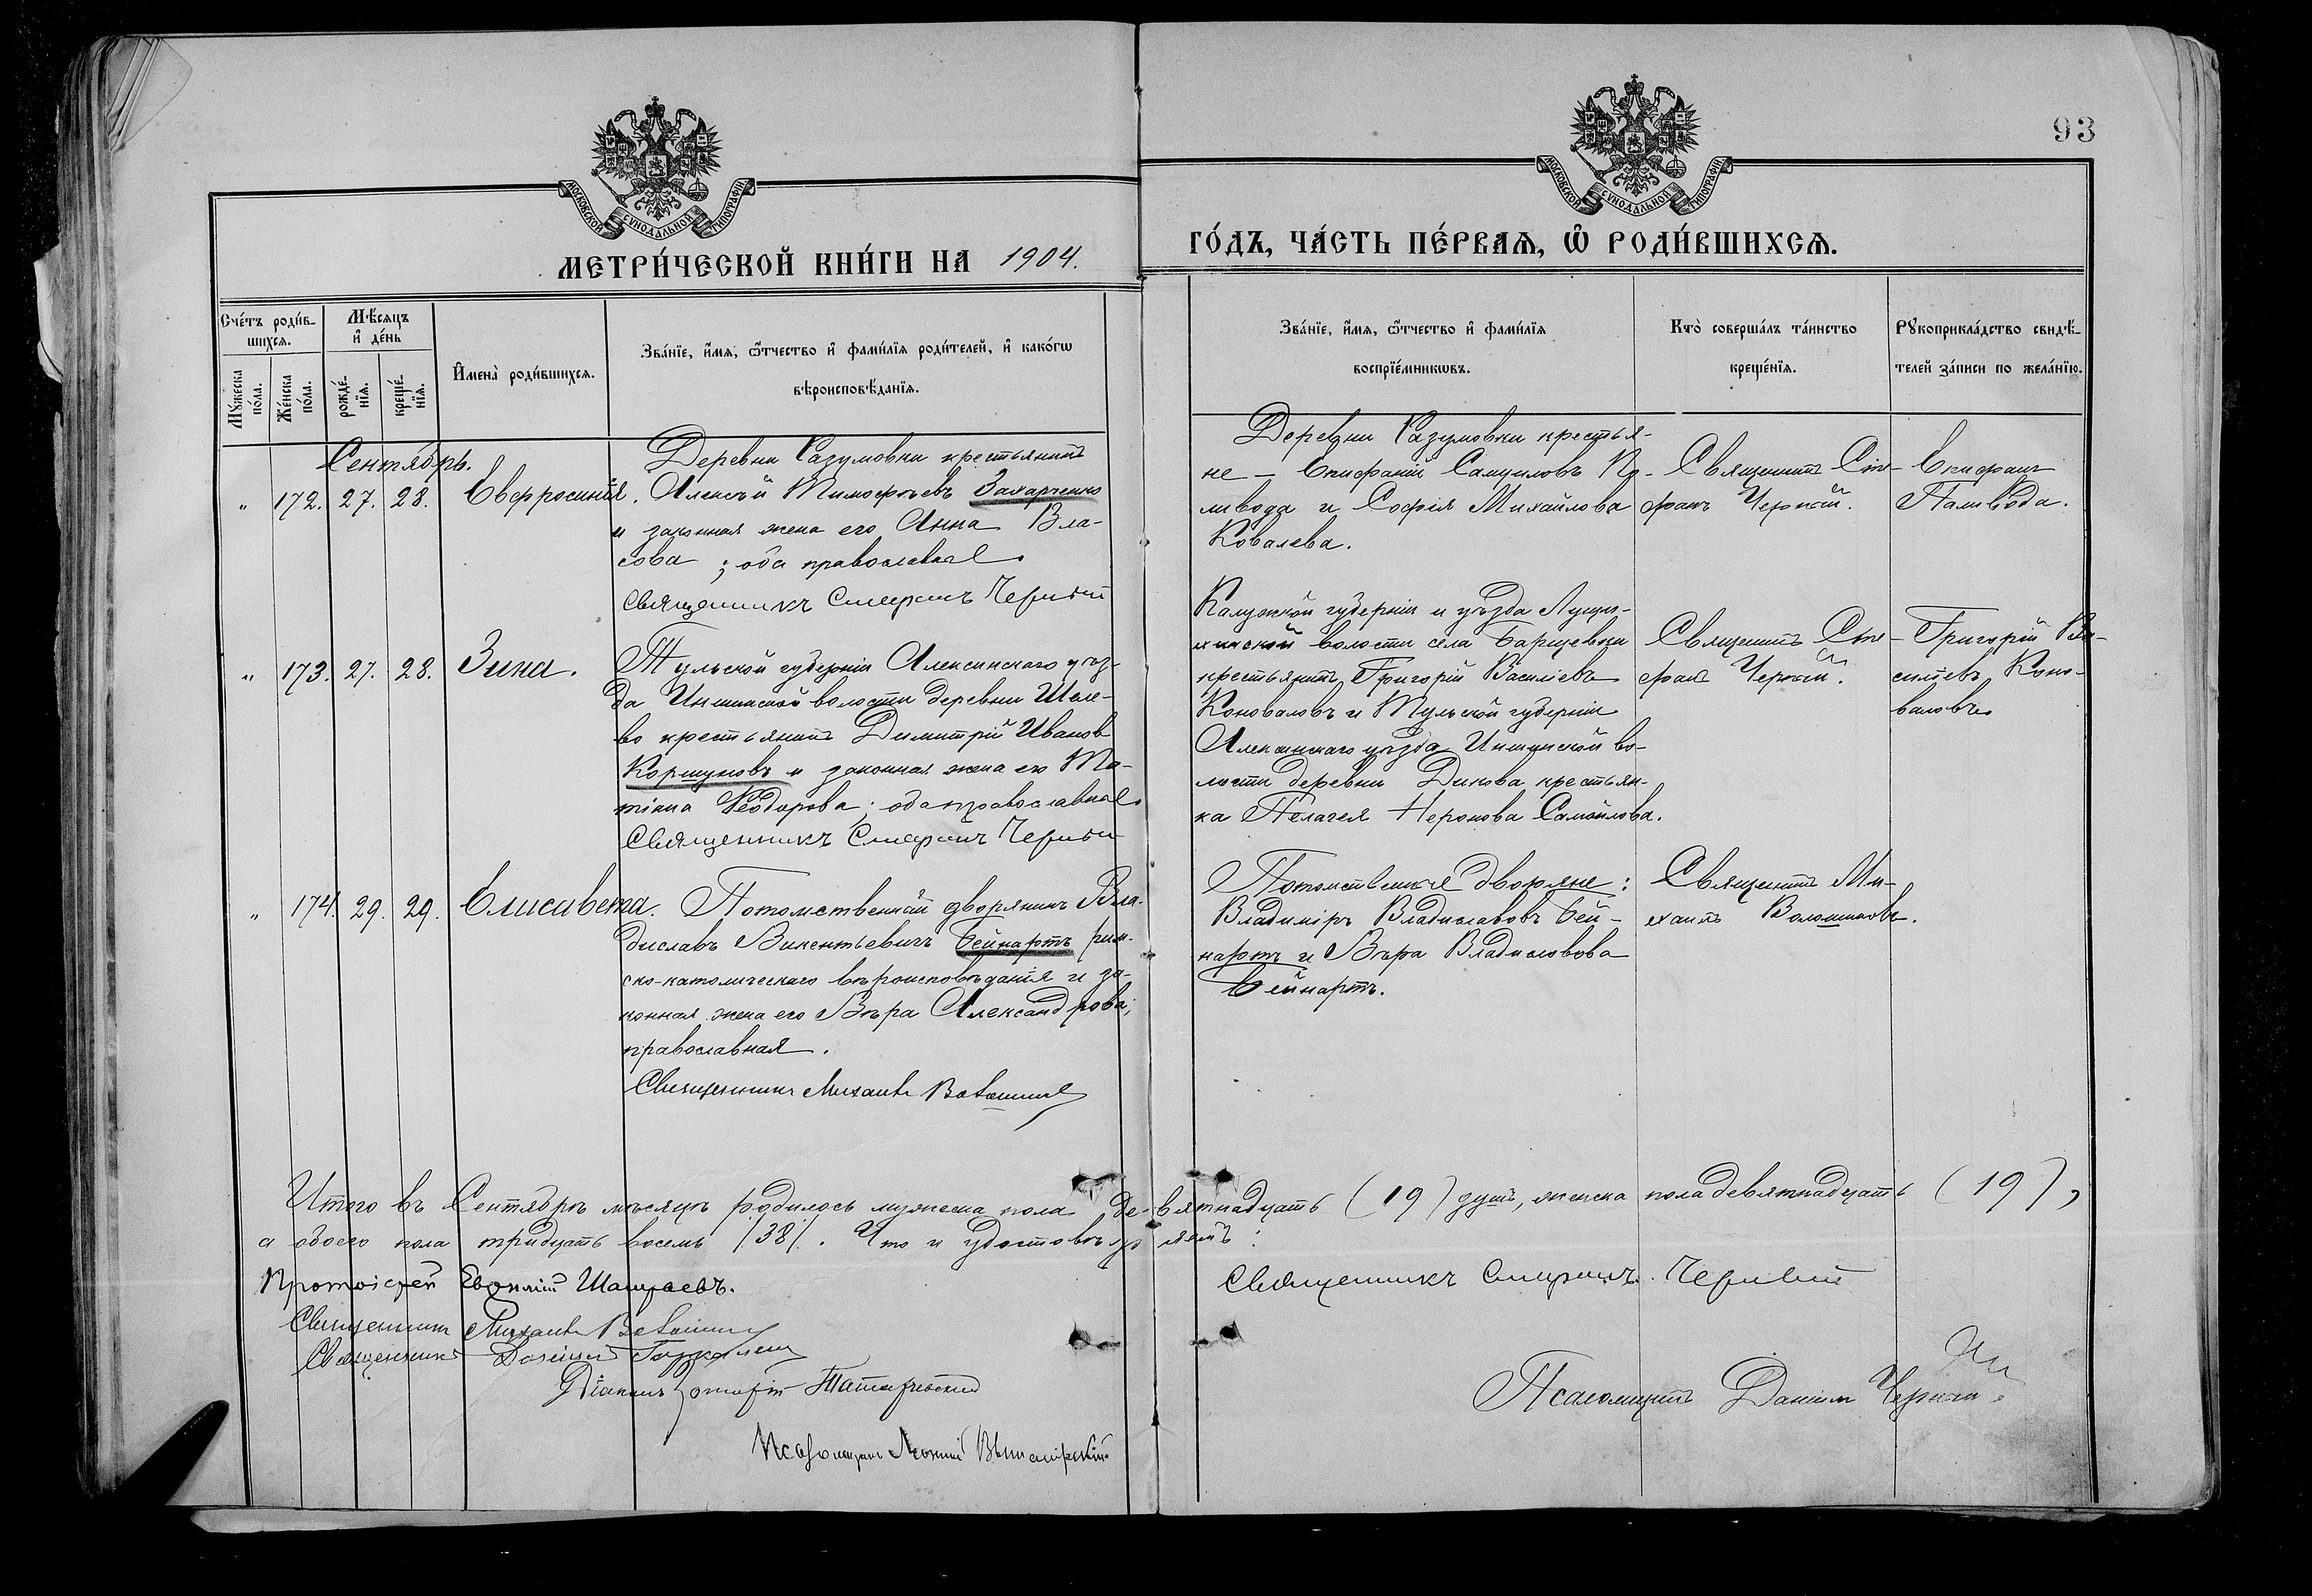 93
МОСКОВСКОЙ СѴНОДАЛЬНОЙ ТИПОГРАФІИ
МОСКОВСКОЙ СѴНОДАЛЬНОЙ ТИПОГРАФІИ
МЕТРИ́ЧЕСКОЙ КНИ́ГИ НА 1904.
ГО́ДЪ, ЧА́СТЬ ПЕ́РВАѦ, Ѽ РОДИ́ВШИХСѦ.
Сче́тъ роди́в-
шихсѧ.
Мꙋ́жеска по́ла.
Же́нска по́ла.
Мѣ́сяцъ
и҆ де́нь
рожде́-
нїѧ.
креще́-
нїѧ.
И҆мена̀ роди́вшихсѧ.
Зва́нїе, и҆́мѧ, ѻ҆́тчество и҆ фами́лїѧ роди́телей, и҆ како́гѡ
вѣроисповѣ́данїѧ.
Зва́нїе, и҆́мѧ, ѻ҆́тчество и҆ фами́лїѧ
воспрїе́мникѡвъ.
Кто̀ соверша́лъ та́инство
креще́нїѧ.
Рꙋкоприкла́дство свидѣ́-
телей за́писи по жела́нїю.
Сентябрь.
" 172. 27. 28. Евфросинія.
Деревни Разумовки крестьянинъ
Алексѣй Тимофеевъ Захарченко
и законная жена его Анна Вла-
сова; оба православные
Священникъ Стефанъ Черный
Деревни Разумовки крестья-
не — Епифаній Самуиловъ Па-
ливода и Софія Михайлова
Ковалева.
Священникъ Сте-
фанъ Черный.
Епифанъ
Паливода.
" 173. 27. 28. Зина.
Тульской губерніи Алексинскаго уѣз-
да Иншинской волости деревни
во крестьянинъ Димитрій Ивановъ
Коршуновъ и законная жена его Та-
тіана Ѳеодорова; оба православные
Священникъ Стефанъ Черный
Калужской губерніи и уѣзда
волости села Барщевки
крестьянинъ Григорій Васильевъ
Коноваловъ и Тульской губерніи
Алексинскаго уѣзда Иншинской во-
лости деревни Дикова крестьян-
ка Пелагея Неронова Самойлова.
Священникъ Сте-
фанъ Черный.
Григорій Ва-
сильевъ Коно-
валовъ
" 174. 29. 29. Елисавета.
Потомственный дворянинъ Вла-
диславъ Викентьевичъ Бейнартъ рим-
ско-католическаго вѣроисповѣданія и за-
конная жена его Вѣра Александрова,
православная.
Священникъ Михаилъ Волошинов
Потомственные дворяне:
Владиміръ Владиславовъ Бей-
нартъ и Вѣра Владиславова
Бейнартъ.
Священникъ Ми-
хаилъ Волошиновъ.
Итого въ Сентябрѣ мѣсяцѣ родилось мужеска пола девятнадцать (19) душъ, женска пола девятнадцать (19),
а обоего пола тридцать восемь (38). Что и удостовѣряемъ:
Протоіерей Евфимій
Священникъ Стефанъ Черный
Священникъ Михаилъ Волошинов
Священникъ
Діаконъ
Псаломщикъ Даніилъ Черный
Псаломщикъ Леонтій